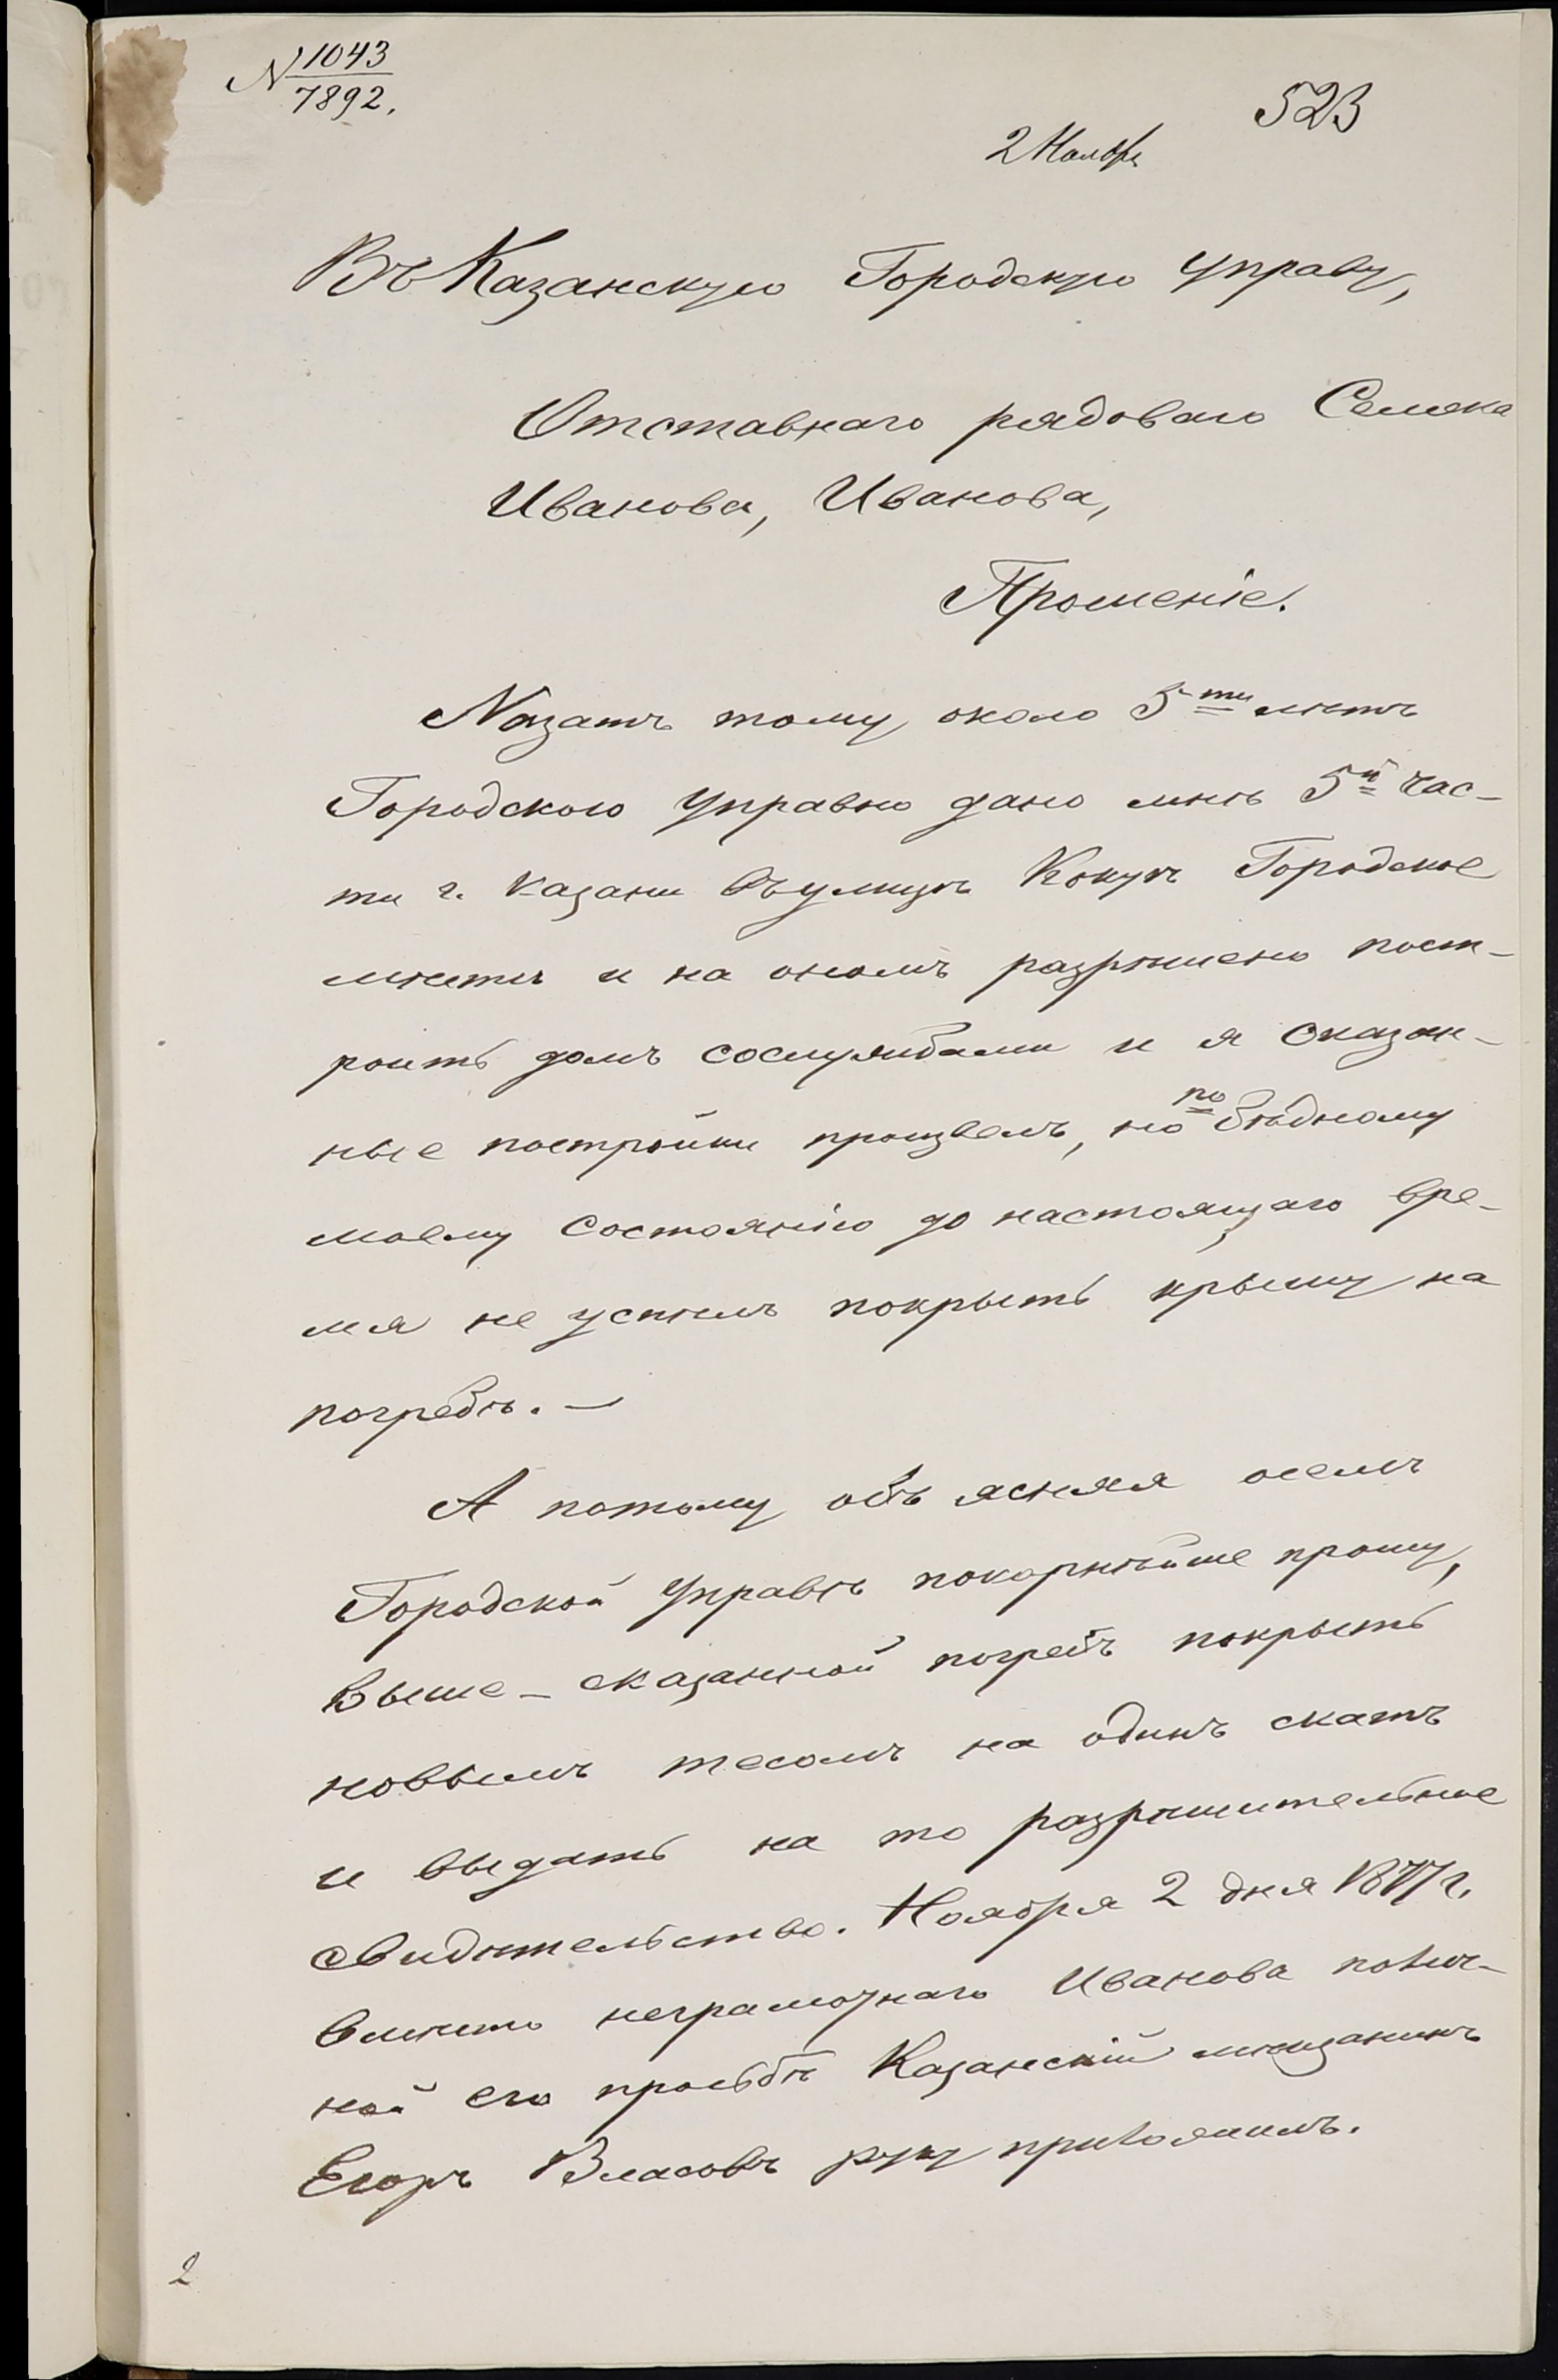 N 1043
7892.
523
2 Ноября
Въ Казанскую Городскую Управу,
Отставнаго рядоваго Семена
Иванова, Иванова,
Прошеніе.
Назатъ тому около 5ти летъ
Городскою Управою дано мнѣ 5й час-
ти г. Казани въ улицѣ Кокуй Городское
мѣсто и на ономъ разрѣшено пост-
роить домъ сослужбами и я сказан-
ные постройки произвелъ, но по бѣдному
моему состоянію до настоящаго вре-
мя не успѣлъ покрыть крышу на
погребѣ. —
А потому объ ясняя осемъ
Городской Управѣ покорнѣйше прошу,
выше-сказанной погребъ покрыть
новымъ тесомъ на одинъ скатъ
и выдать на то разрѣшительное
свидѣтельство. Ноября 2 дня 1877 г.
вмѣсто неграмотнаго Иванова полич-
ной его прозьбѣ Казанскій мѣщанинъ
Егоръ Власовъ руку приложилъ.
2